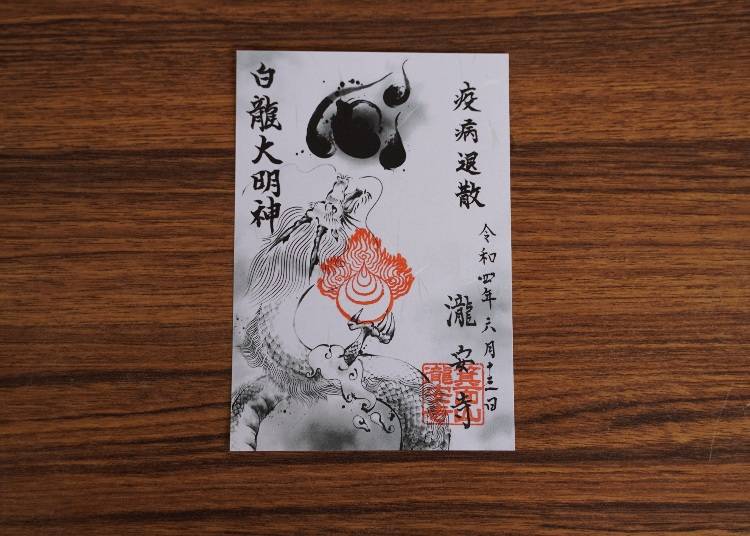 疫病退散
令和四年六月十三日
瀧安寺
箕面山
瀧安寺
白龍大明神